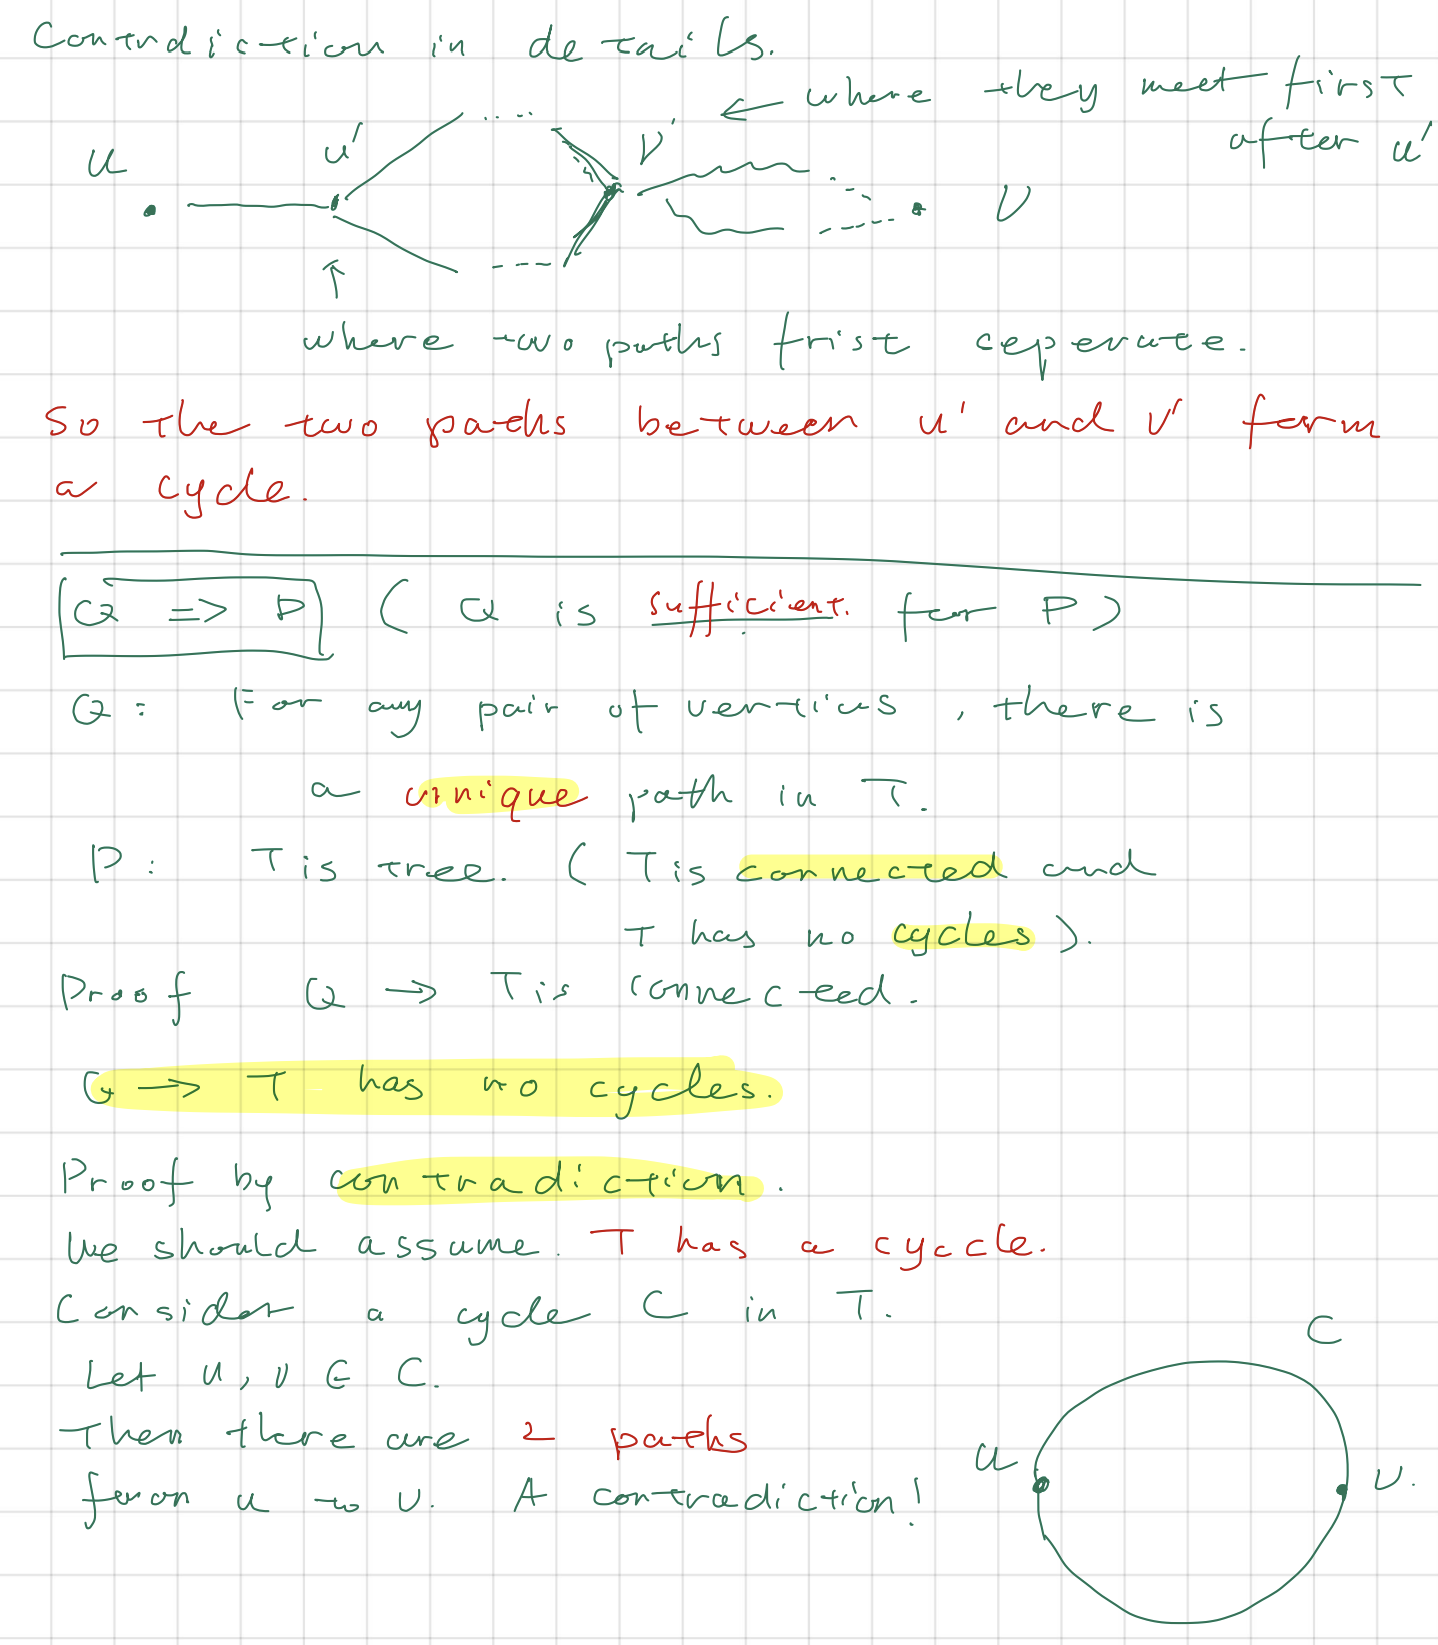 Contradiction in details.
where they meet first
after u'
u u' v' v
where two paths frist ceperate.
So the two paths between u' and v' form
a cycle.
Q => P ( Q is sufficient. for P )
Q : For any pair of vertices , there is
a unique path in T.
P : T is tree. ( T is connected and
T has no cycles ).
Proof Q → T is connected.
Q → T has no cycles.
Proof by contradiction .
We should assume. T has a cyccle.
Consider a cycle C in T.
C
Let u, v ∈ C.
Then there are 2 paths
u v.
from u to v. A contradiction!